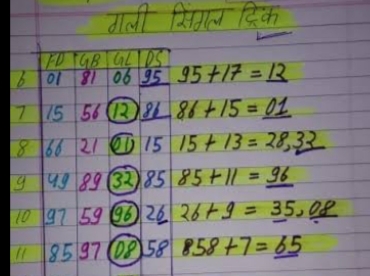 गली सिंगल ट्रिक
FD GB GL DS
6 01 81 06 95 95+17=12
7 15 56 12 86 86+15=01
8 66 21 01 15 15+13=28,32
9 49 89 32 85 85+11=96
10 97 59 96 26 26+9=35,08
11 85 97 08 58 858+7=65